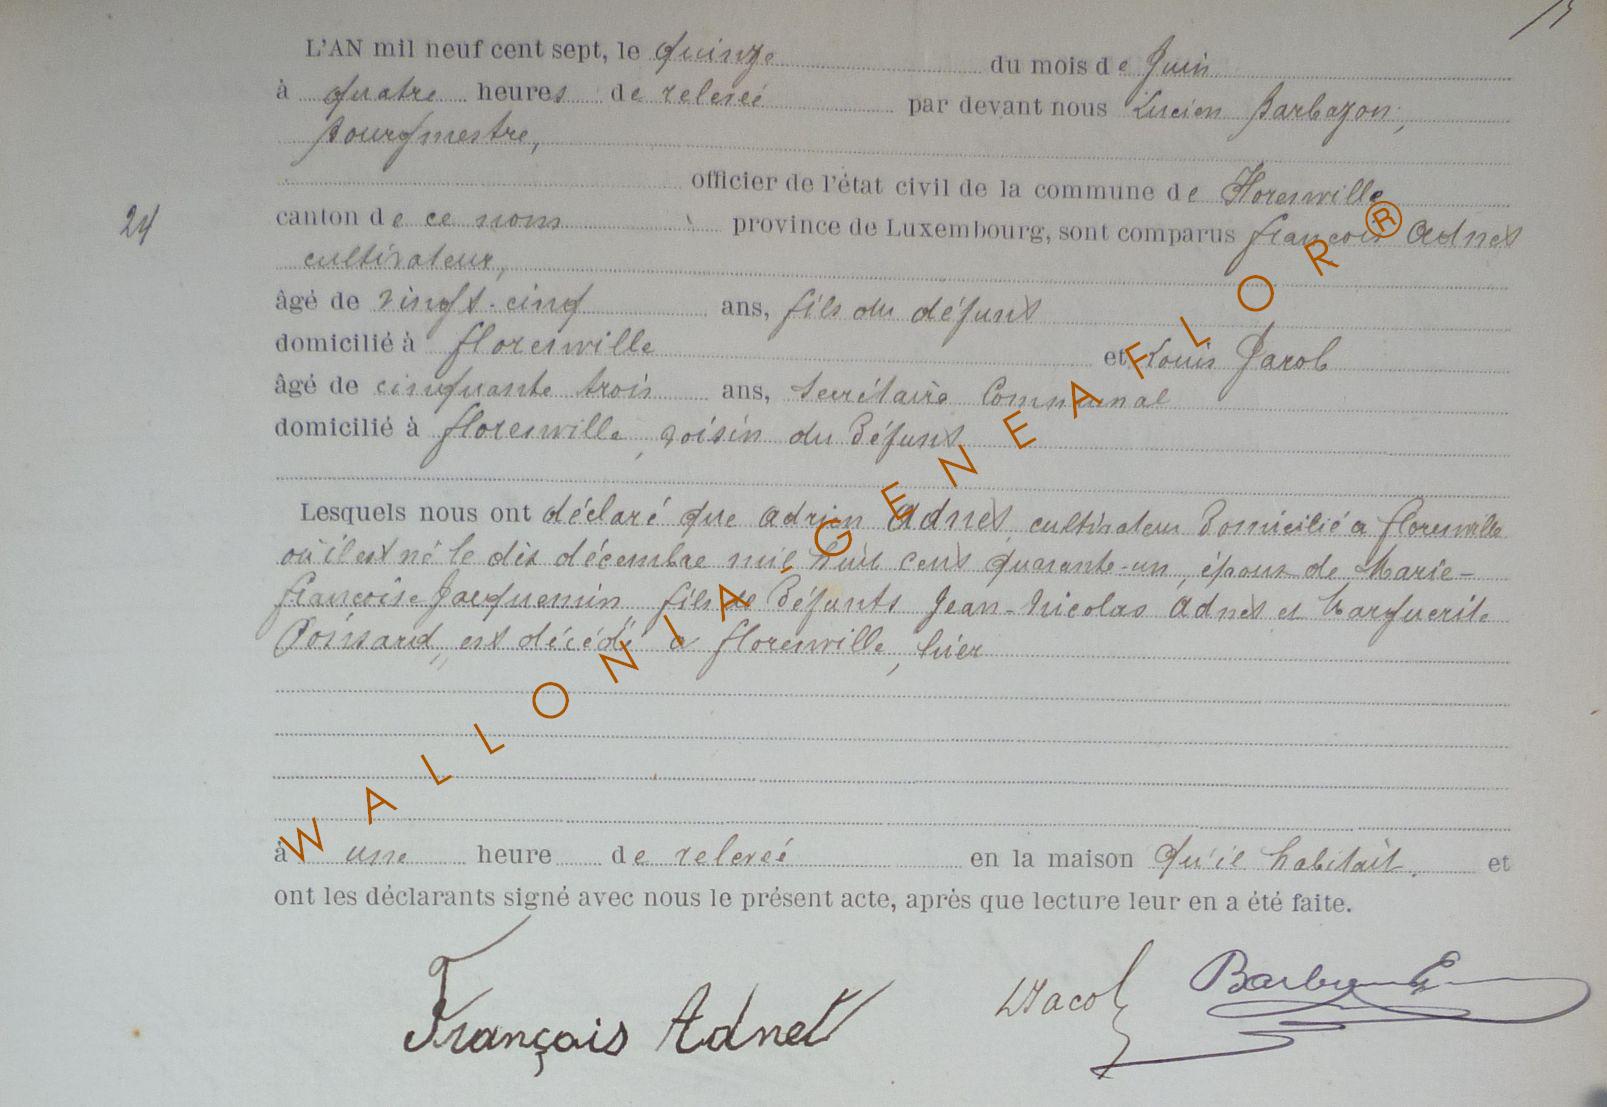 L'AN mil neuf cent sept, le quinze du mois de Juin
à quatre heures de relevée par devant nous Lucien Barbazon,
Bourgmestre,
officier de l'état civil de la commune de Florenville
24
canton de ce nom province de Luxembourg, sont comparus françois Adnet
cultivateur,
âgé de vingt-cinq ans, fils du défunt
domicilié à florenville et Louis Jacob
âgé de cinquante trois ans, Secrétaire Communal
domicilié à florenville, voisin du Défunt
Lesquels nous ont déclaré que Adrien Adnet, cultivateur Domicilié a florenville
où il est né le dix décembre mil huit cent quarante-un, époux de Marie-
françoise Jacquemin fils de Défunts Jean-Nicolas Adnet et Marguerite
Poinsard, est décédé a florenville, hier
à une heure de relevée en la maison qu'il habitait. et
ont les déclarants signé avec nous le présent acte, après que lecture leur en a été faite.
François Adnet LJacob
WALLONIA-GENEAFLOR®